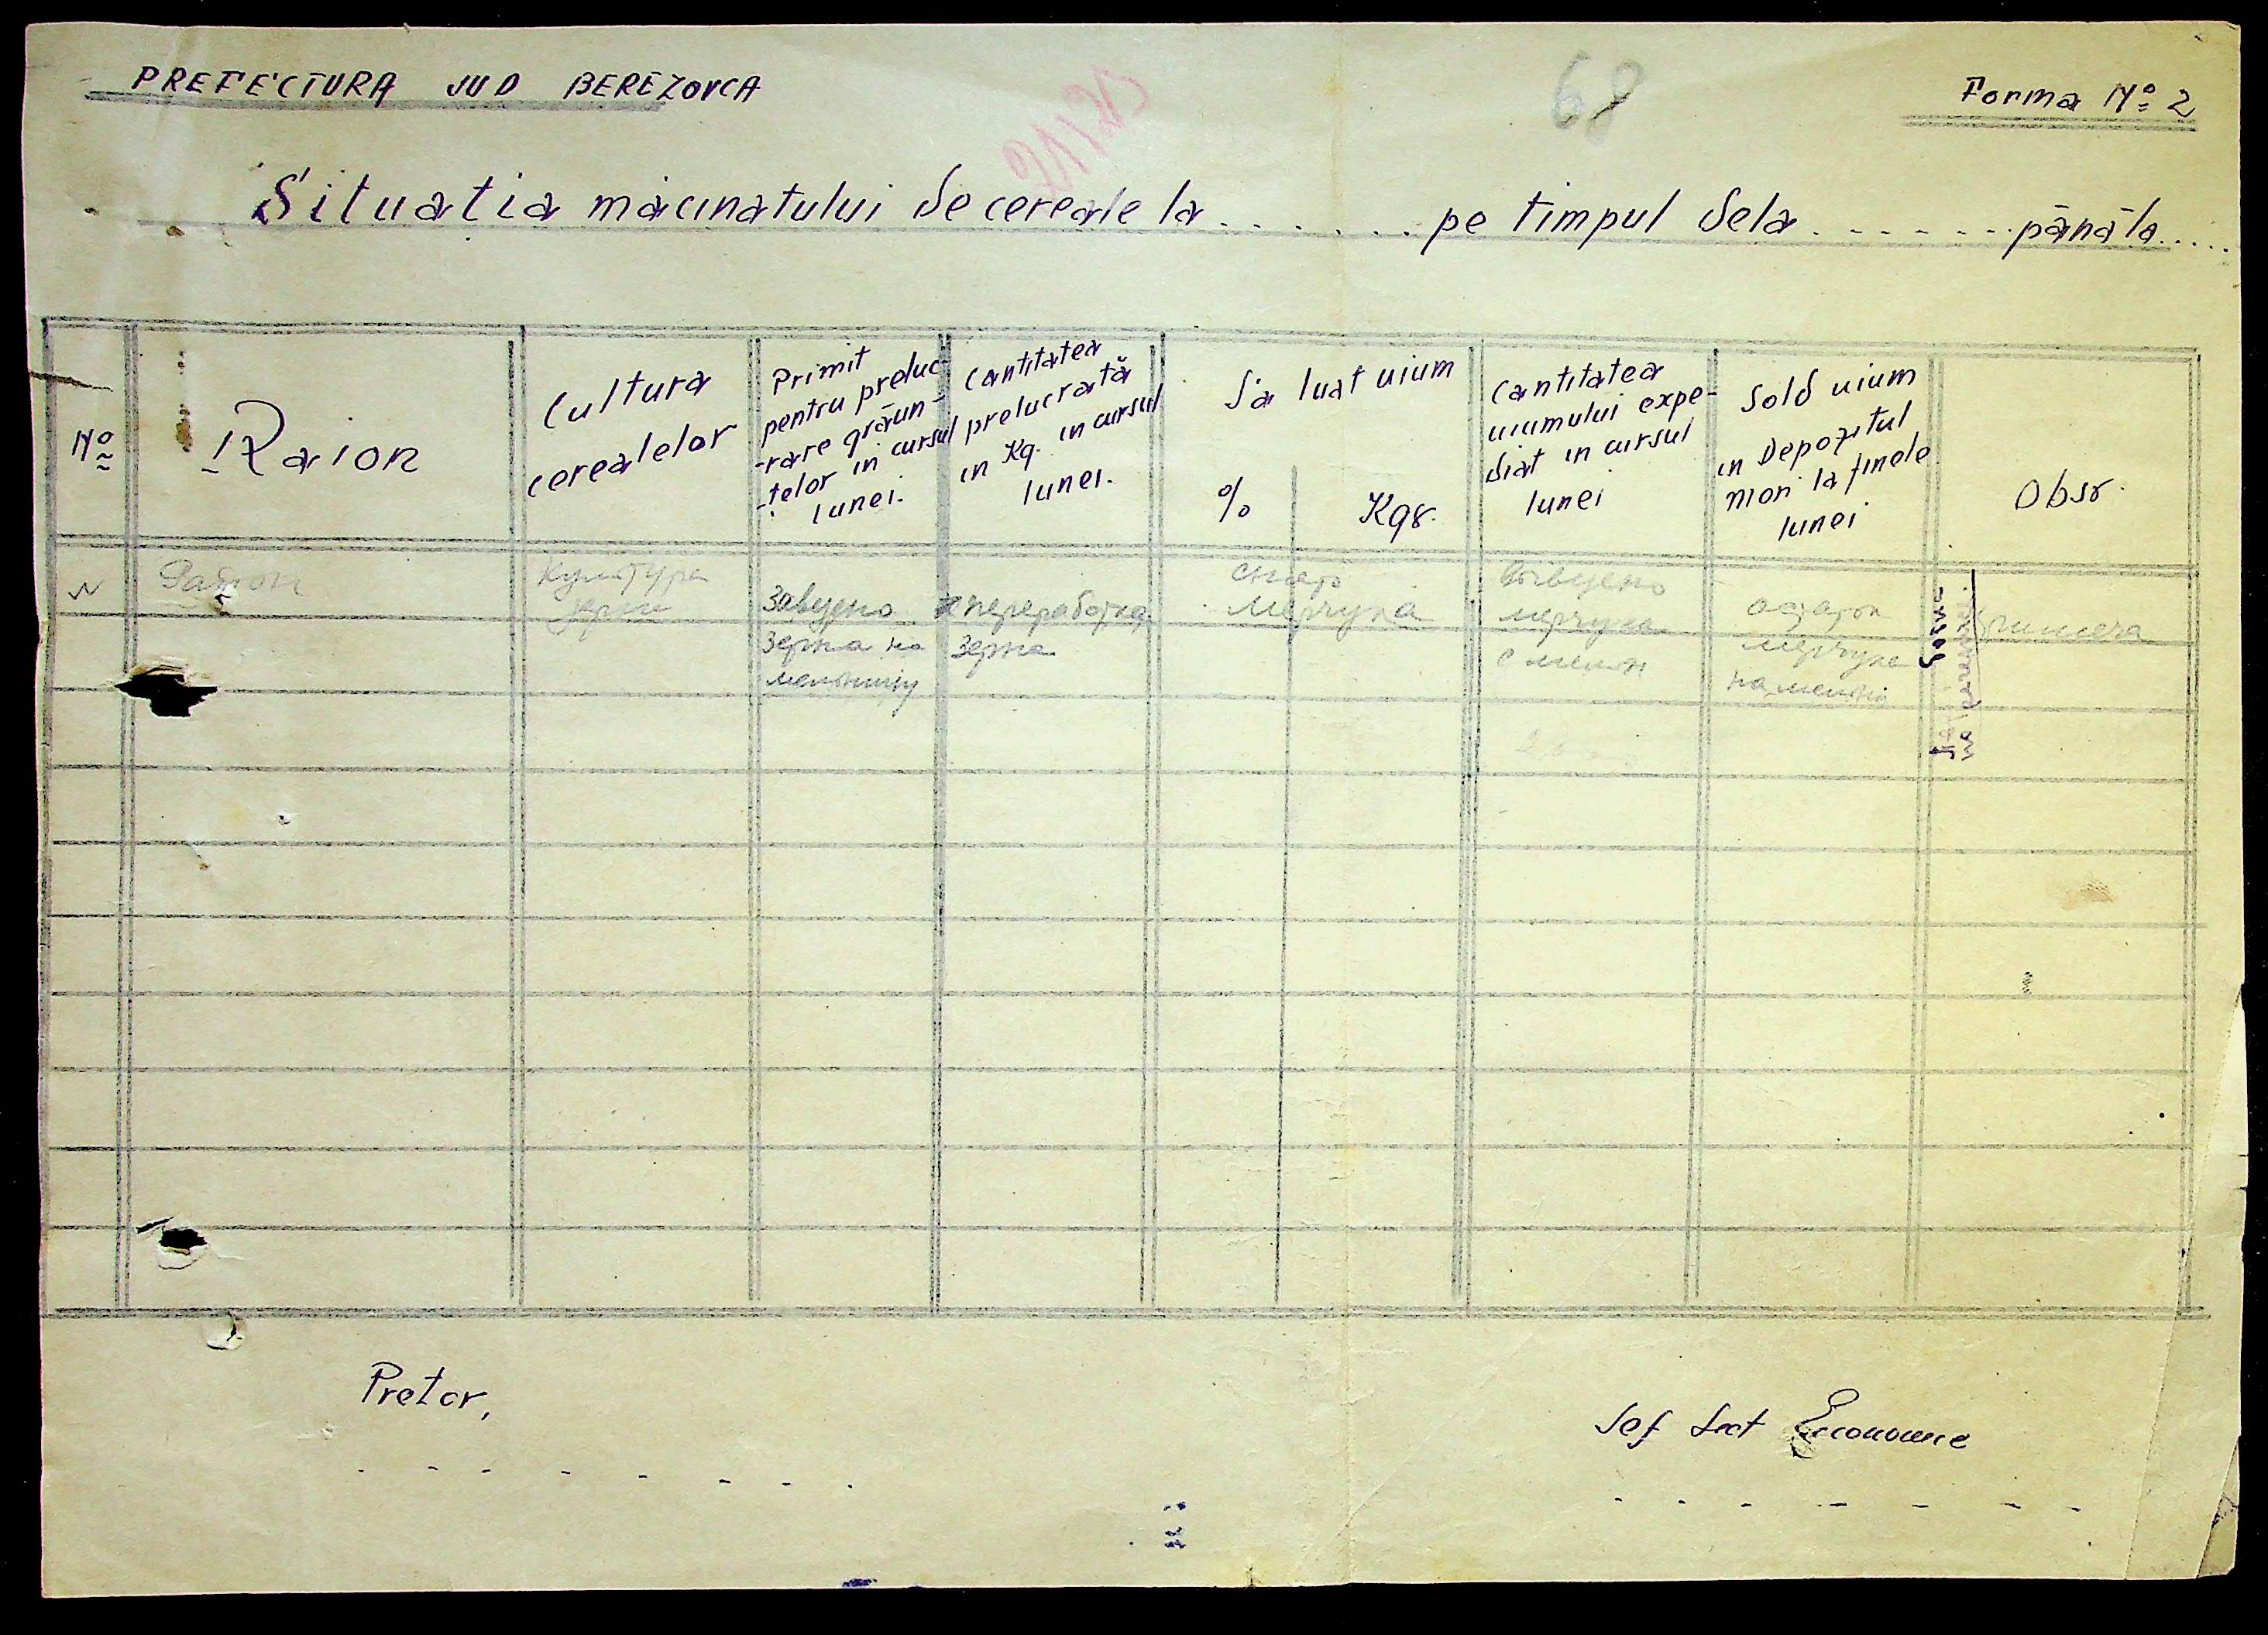 PREFECTURA JUD BEREZOVCA
68
Forma № 2
Situatia măcinatului de cereale la . . . . . . . pe timpul dela . . . . . . . până la . . . . .
№
Raion
Cultura
cerealelor
Primit
pentru preluc-
-rare grăun-
-telor in cursul
lunei.
Cantitatea
prelucrată
in Kg. in cursul
lunei.
S'a luat uium
%
Kgr.
Cantitatea
uiumului expe-
diat in cursul
lunei
Sold uium
in Depozitul
morii la finele
lunei
Obsr.
N
Район
Культура
зерна
Завезено
зерна на
мельницу
переработка
зерна
снято
Мерчука
вывезено
мерчука
с мельн
остаток
мерчука
на мельни
Pretor,
Sef Sect Economic